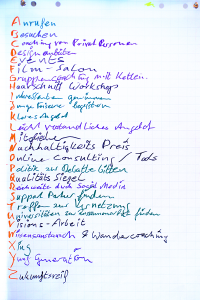 Anrufen
Besuchen
Coaching von Privat Personen
Designanbieter
EVENTS
Film - Salon
Gruppencoaching mit Ketten
Haarschnitt Workshops
Investoren gewinnen
Junge Firmen
Klares Angebot
Leicht verständliches Angebot
Mitglieder
Nachhaltigkeits Preis
Online Consulting / Tools
Politik zur Debatte bitten
Qualitäts Siegel
Reichweite durch Social Media
Support Partner finden
Treffen zur Vernetzung
Universitäten zur Zusammenarbeit finden
Visions-Arbeit
Wissensaustausch & Wandercoaching
Xing
Young Generation
Zukunftsreif